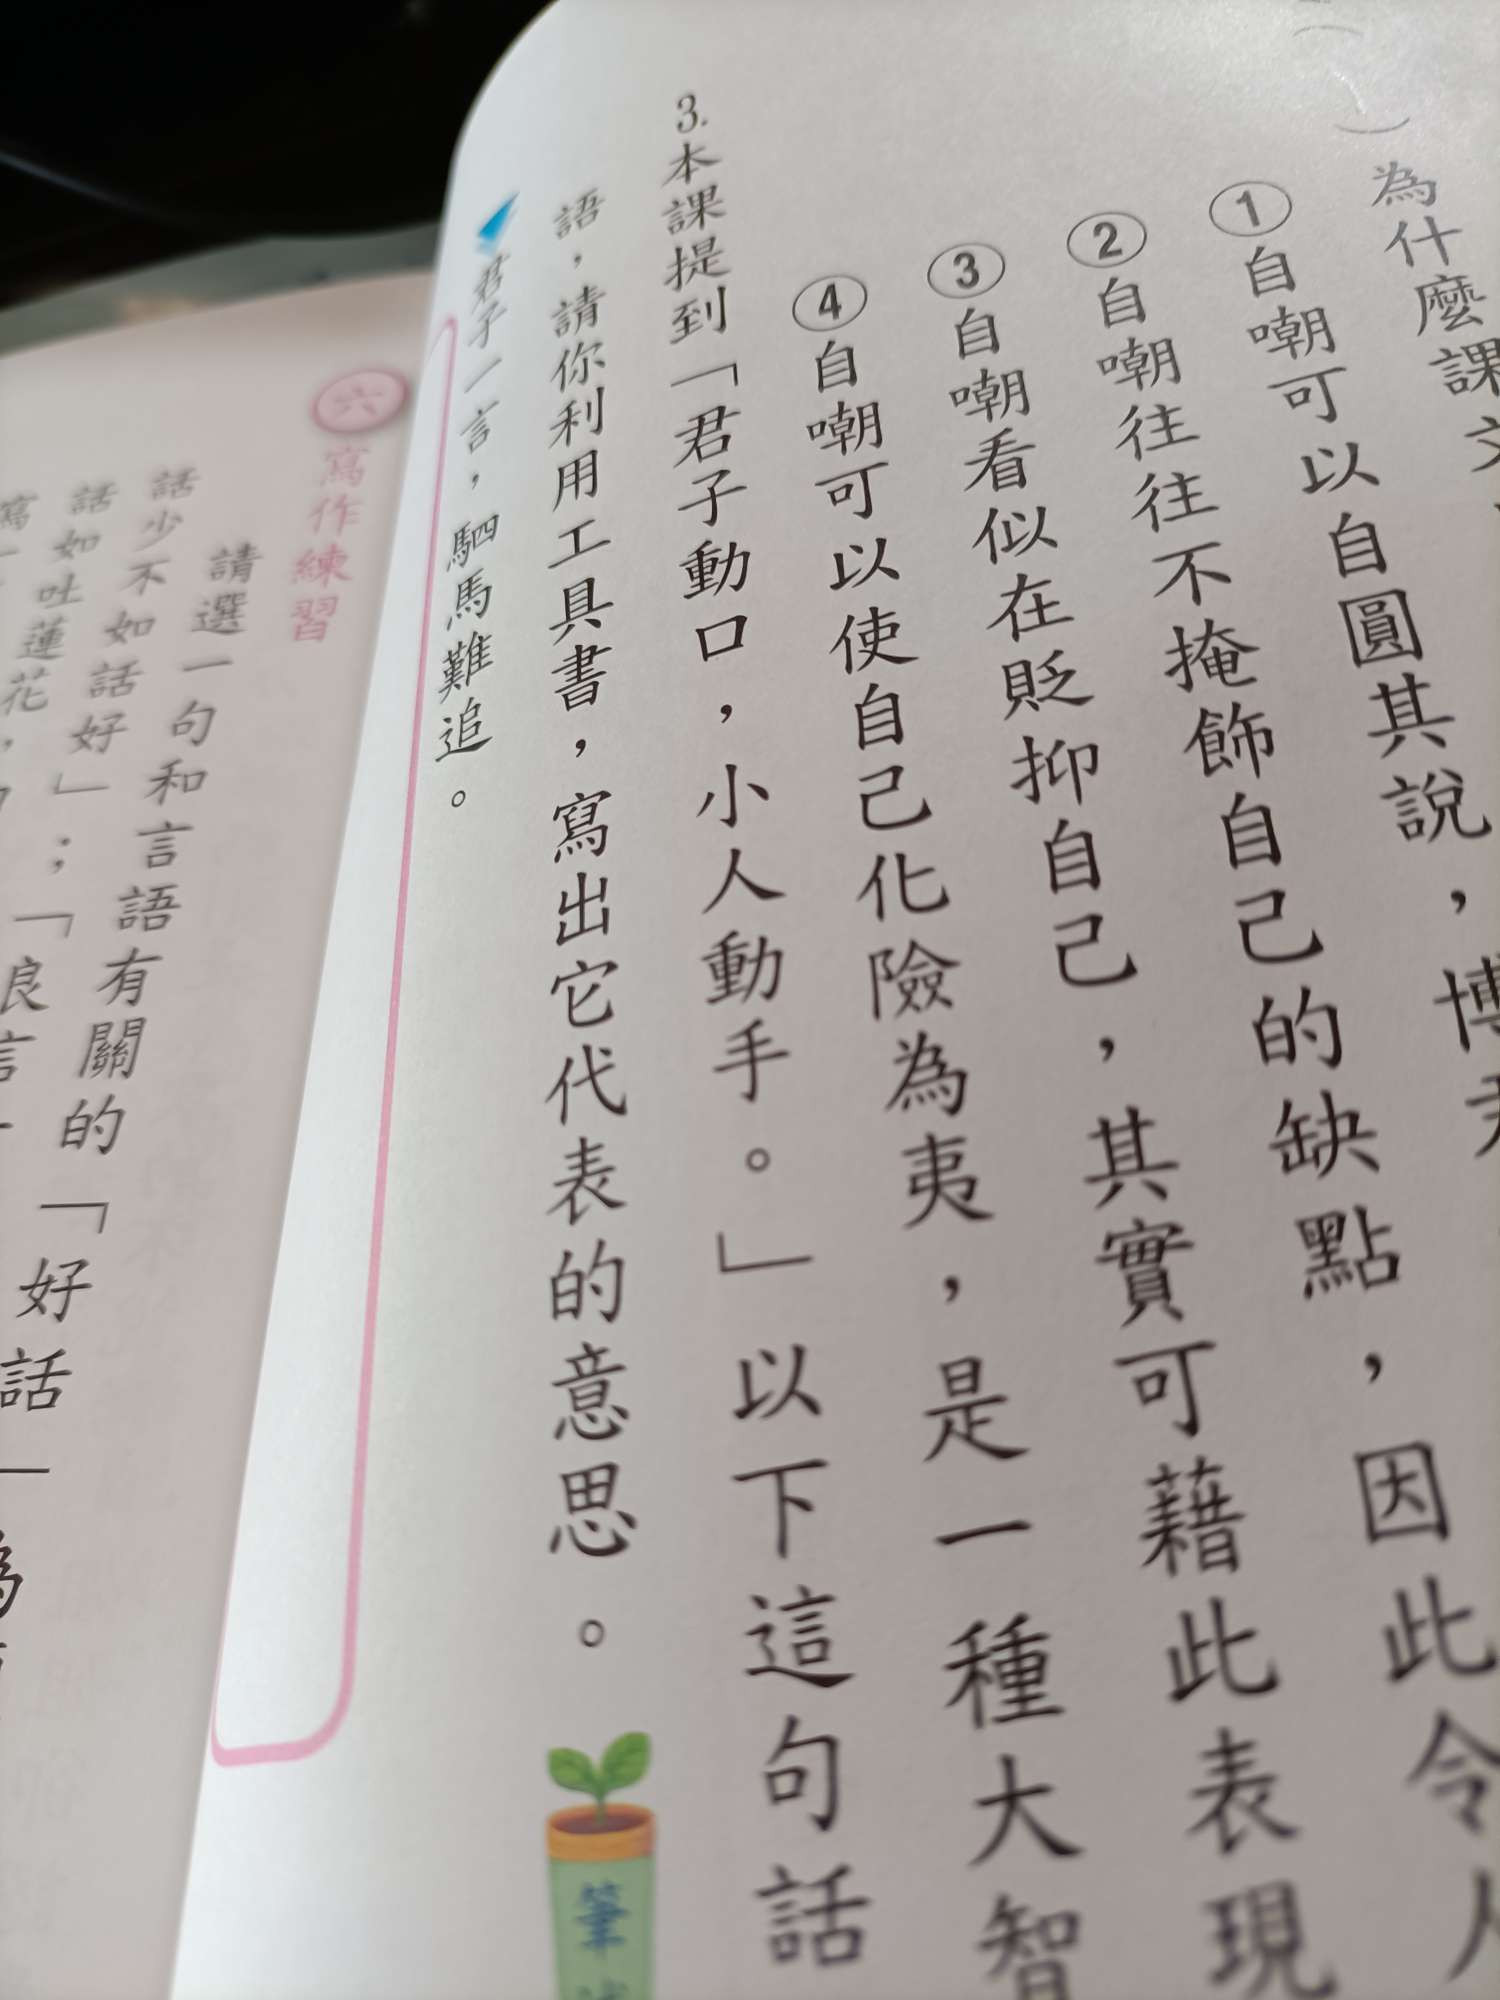 為什麼課文
①自嘲可以自圓其說，博君
②自嘲往往不掩飾自己的缺點，因此令人
③自嘲看似在貶抑自己，其實可藉此表現
④自嘲可以使自己化險為夷，是一種大智
3.本課提到「君子動口，小人動手。」以下這句話
語，請你利用工具書，寫出它代表的意思。
筆
君子一言，駟馬難追。
六 寫作練習
請選一句和言語有關的「好話
話少不如話好」；「良言一
話如吐蓮花，